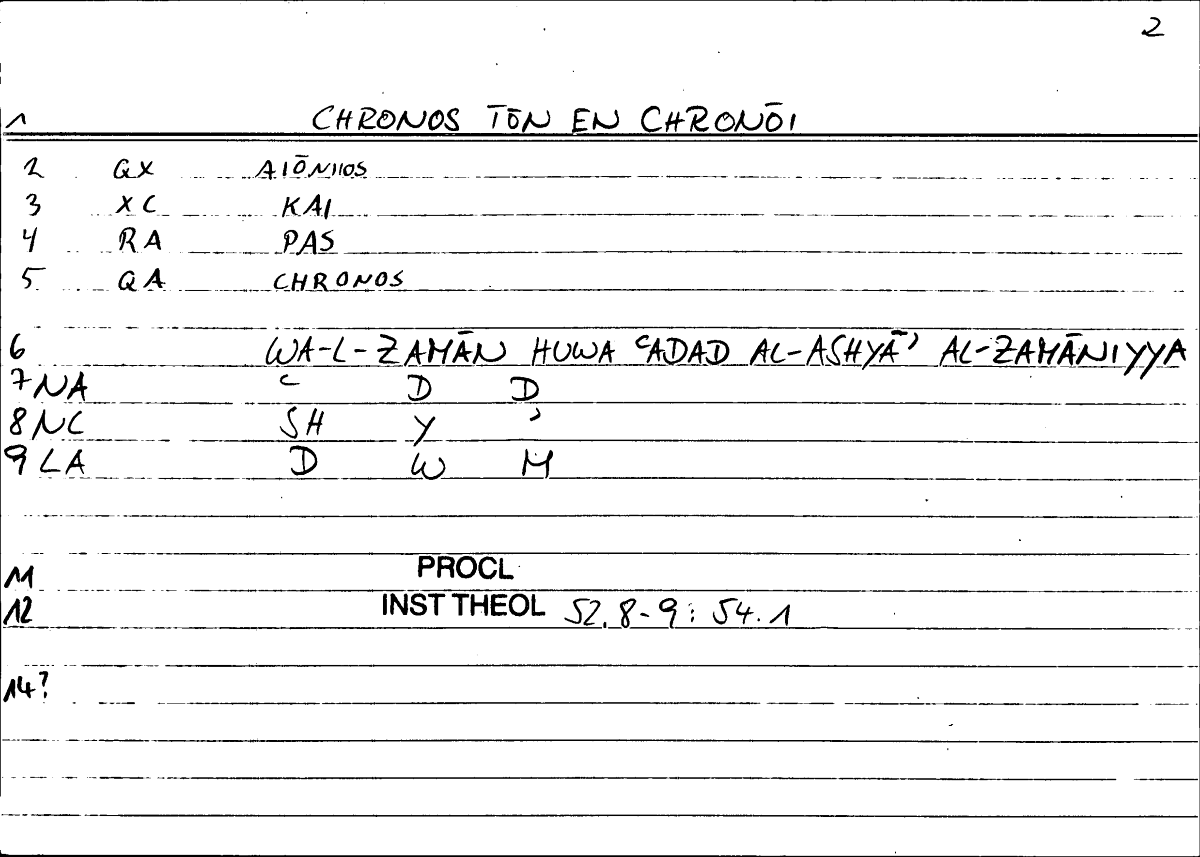 2
1 CHRONOS TŌN EN CHRONŌI
2 QX AIŌNIOS
3 XC KAI
4 RA PAS
5 QA CHRONOS
6 WA-L-ZAMĀN HUWA ʿADAD AL-ASHYĀʾ AL-ZAMĀNIYYA
7 NA ʿ D D
8 NC SH Y ʾ
9 LA D W M
11 PROCL
12 INST THEOL 52.8-9: 54.1
14?